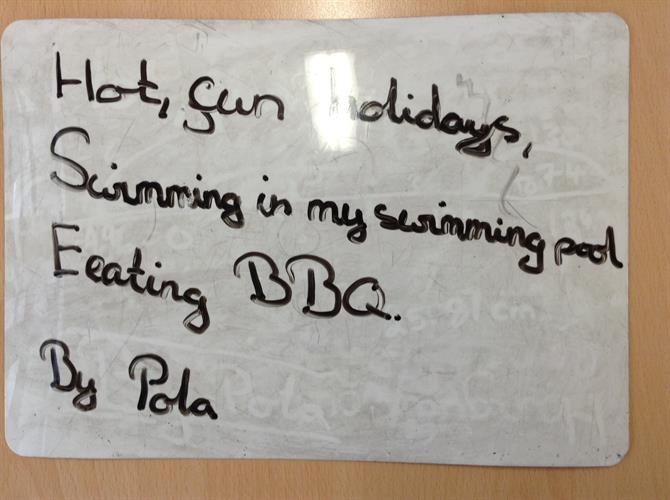 Hot, sun holidays,
Swimming in my swimming pool
Eeating BBQ.
By Pola